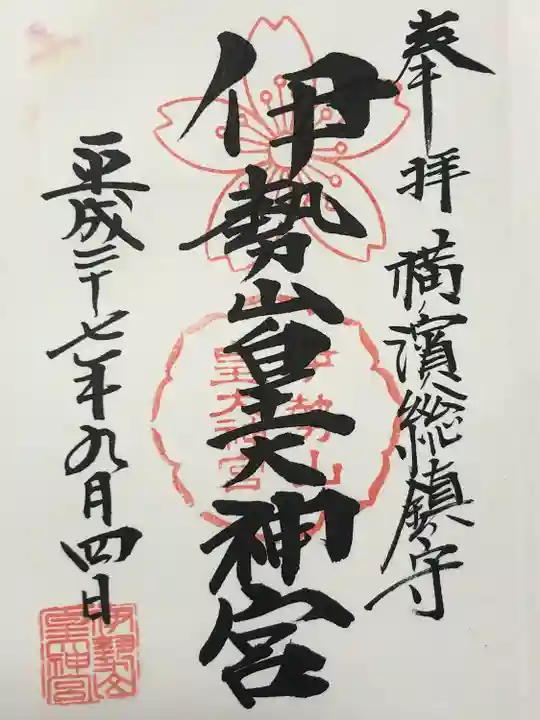 奉拝 横濱総鎮守
伊勢山皇大神宮
伊勢山
皇大神宮
平成二十七年九月四日
伊勢山
皇神宮